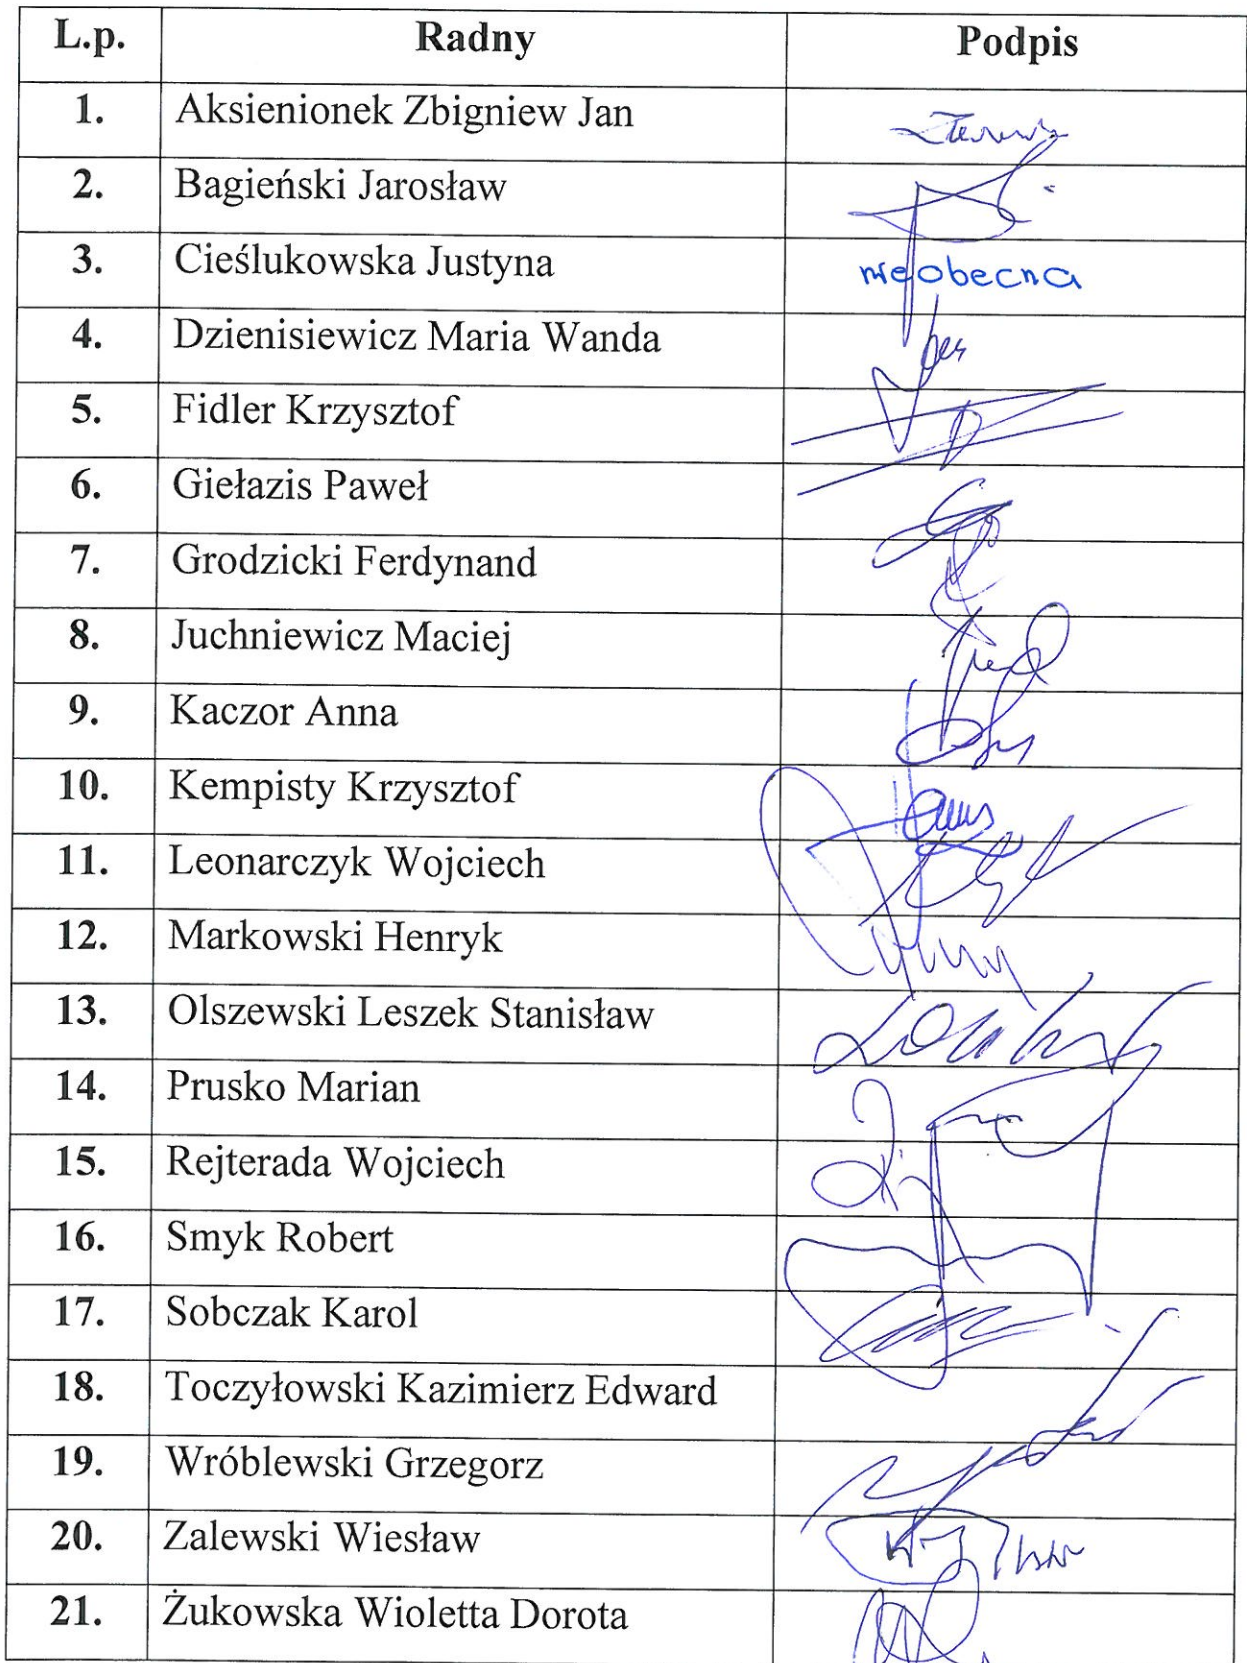 L.p. Radny Podpis
1. Aksienionek Zbigniew Jan
2. Bagieński Jarosław
3. Cieślukowska Justyna nieobecna
4. Dzienisiewicz Maria Wanda
5. Fidler Krzysztof
6. Giełazis Paweł
7. Grodzicki Ferdynand
8. Juchniewicz Maciej
9. Kaczor Anna
10. Kempisty Krzysztof
11. Leonarczyk Wojciech
12. Markowski Henryk
13. Olszewski Leszek Stanisław
14. Prusko Marian
15. Rejterada Wojciech
16. Smyk Robert
17. Sobczak Karol
18. Toczyłowski Kazimierz Edward
19. Wróblewski Grzegorz
20. Zalewski Wiesław
21. Żukowska Wioletta Dorota